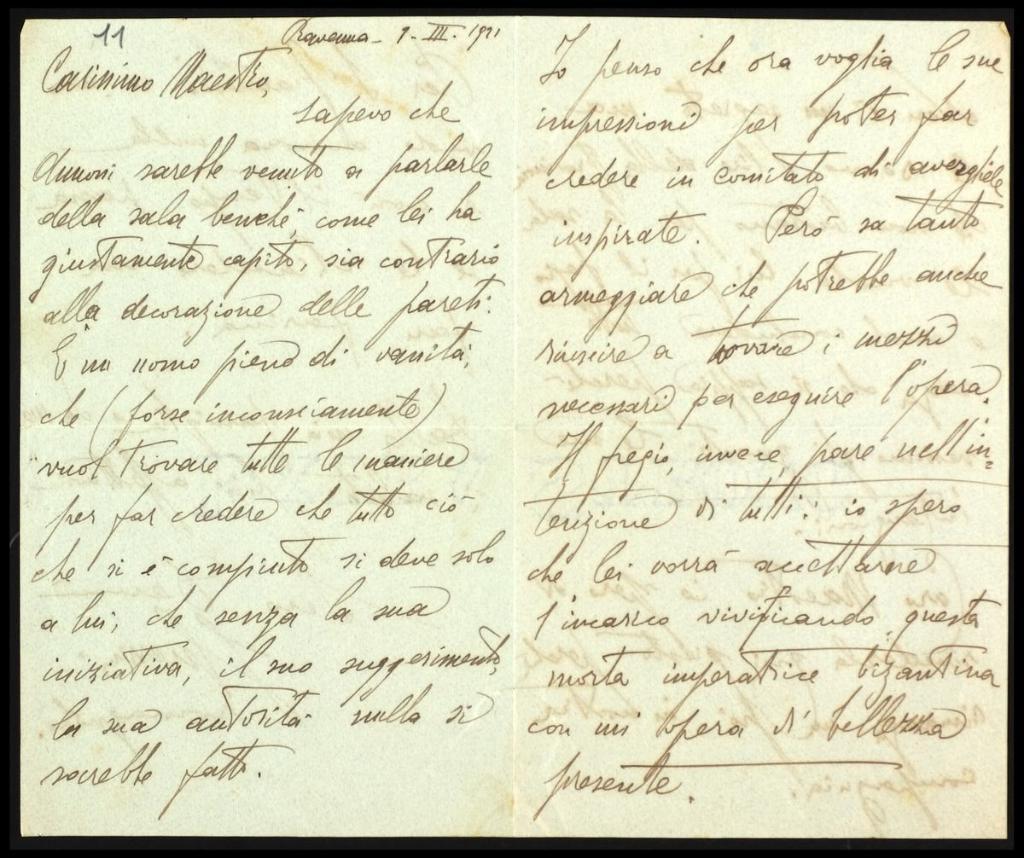 11
Ravenna - 9 - III. 1921
Carissimo Maestro,
sapevo che
Annoni sarebbe venuto a parlarle
della sala benché, come lei ha
giustamente capito, sia contrario
alla decorazione delle pareti.
È un uomo pieno di vanità,
che (forse inconsciamente)
vuol trovare tutte le maniere
per far credere che tutto ciò
che si è compiuto si deve solo
a lui, che senza la sua
iniziativa, il suo suggerimento,
la sua autorità nulla si
sarebbe fatto.
Io penso che ora voglia le sue
impressioni per poter far
credere in comitato di averghiele
inspirate. Però sa tanto
armeggiare che potrebbe anche
riuscire a trovare i mezzi
necessari per eseguire l'opera.
Il fregio, invece, pare nell'in=
tenzione di tutti: io spero
che lei vorrà accettarne
l'incarico vivificando questa
morta imperatrice bizantina
con un opera di bellezza
presente.